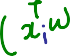 (x_i^T w